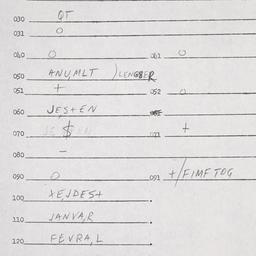 030 QT
031 O
040 O 041 O
050 ANUMLT )LENGBER
051 +
052 O
060 JESTEN
070 $ 071 +
080 –
090 O 091 +/FIMFTOG
100 XEJDEST
110 JANVA,R
120 FEVRA,L